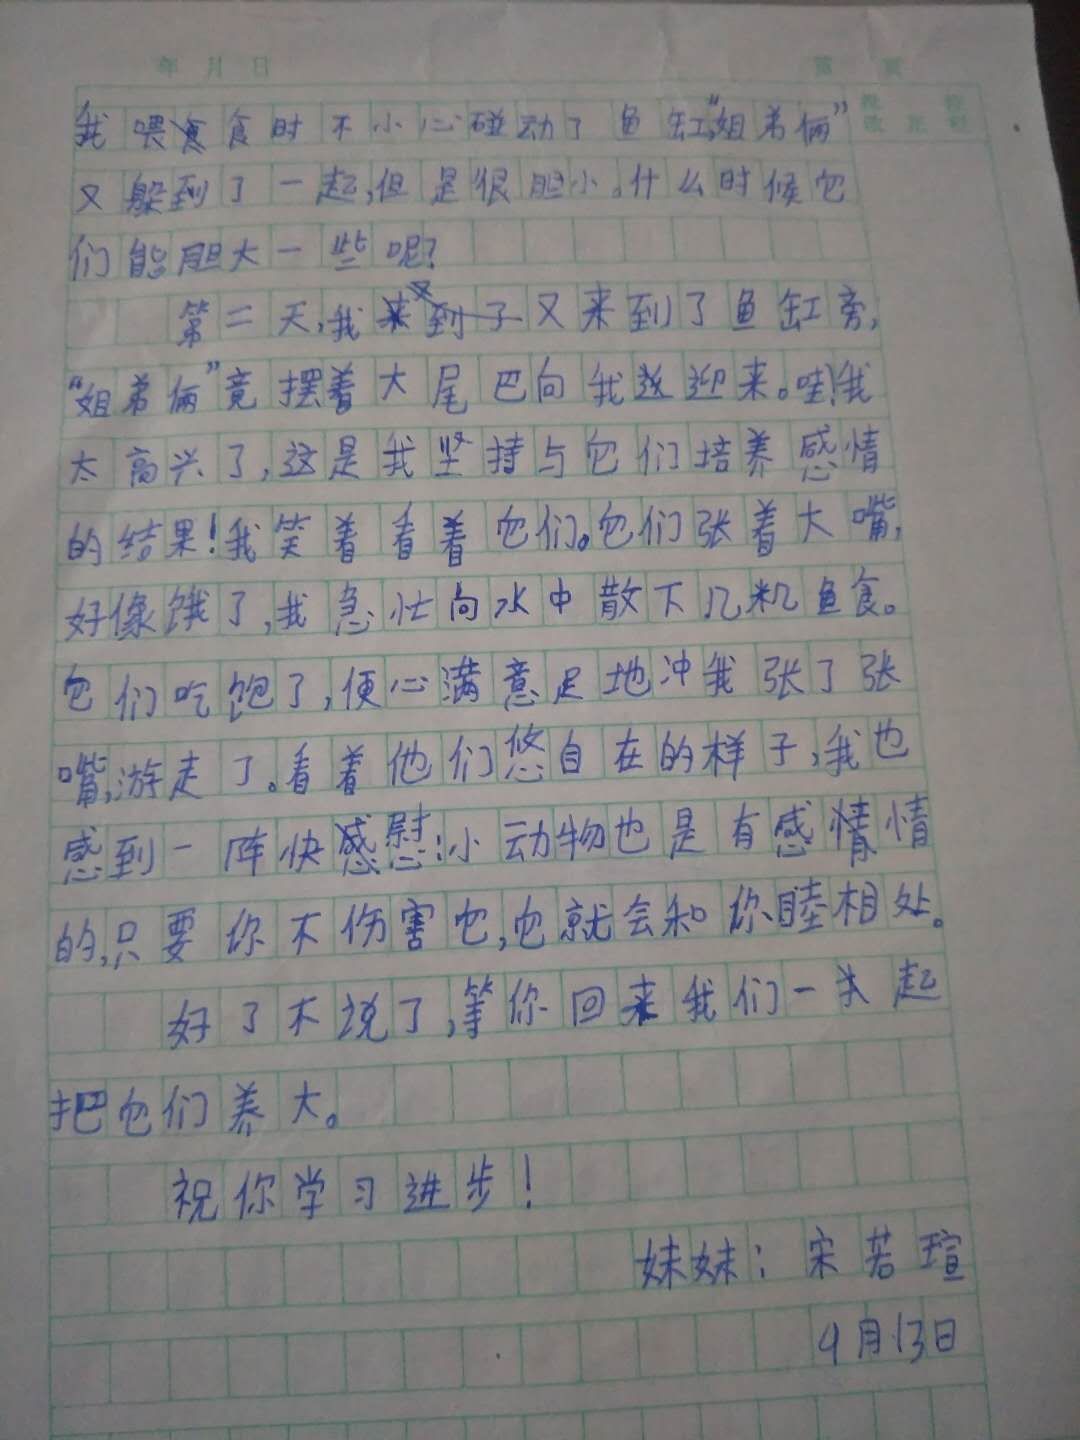 年 月 日
我喂食时不小心碰动了鱼缸,“姐弟俩”
又躲到了一起,但是很胆小。什么时候它
们能胆大一些呢?
第二天,我又来到了鱼缸旁,
“姐弟俩”竟摆着大尾巴向我游迎来。哇!我
太高兴了,这是我坚持与它们培养感情
的结果!我笑着看着它们。它们张着大嘴,
好像饿了,我急忙向水中散下几粒鱼食。
它们吃饱了,便心满意足地冲我张了张
嘴,游走了。看着他们悠自在的样子,我也
感到一阵快慰:小动物也是有感情
的,只要你不伤害它,它就会和你睦相处。
好了不说了,等你回来我们一起
把它们养大。
祝你学习进步!
妹妹:宋若瑄
9月13日